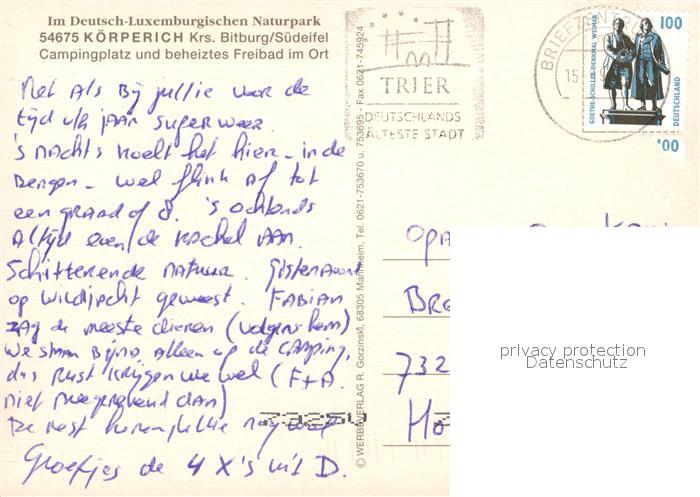 Im Deutsch-Luxemburgischen Naturpark
54675 KÖRPERICH Krs. Bitburg/Südeifel
Campingplatz und beheiztes Freibad im Ort
Net Als Bij jullie voor de
tijd v/h jaar super weer.
's nachts koelt het hier - in de
Bergen - wel flink Af tot
een graad of 8. 's ochtends
Altijd even de kachel AAN.
Schitterende natuur. Gisteravond
op wildjacht geweest. FABIAN
zag de meeste dieren (volgens hem)
We staan Bijna Alleen op de camping,
dus Rust krijgen we wel (F+A
niet meegerekend dan)
De rest horen jullie nog wel
Groetjes de 4 X's uit D.
© WERBEVERLAG R. Gorzinski, 68305 Mannheim, Tel. 0621-753670 u. 753695 - Fax 0621-745924
TRIER
DEUTSCHLANDS
ÄLTESTE STADT
BRIEFZENTRUM
15.
100
GOETHE-SCHILLER-DENKMAL WEIMAR
DEUTSCHLAND
OPA
BRE
732
Ho
privacy protection
Datenschutz